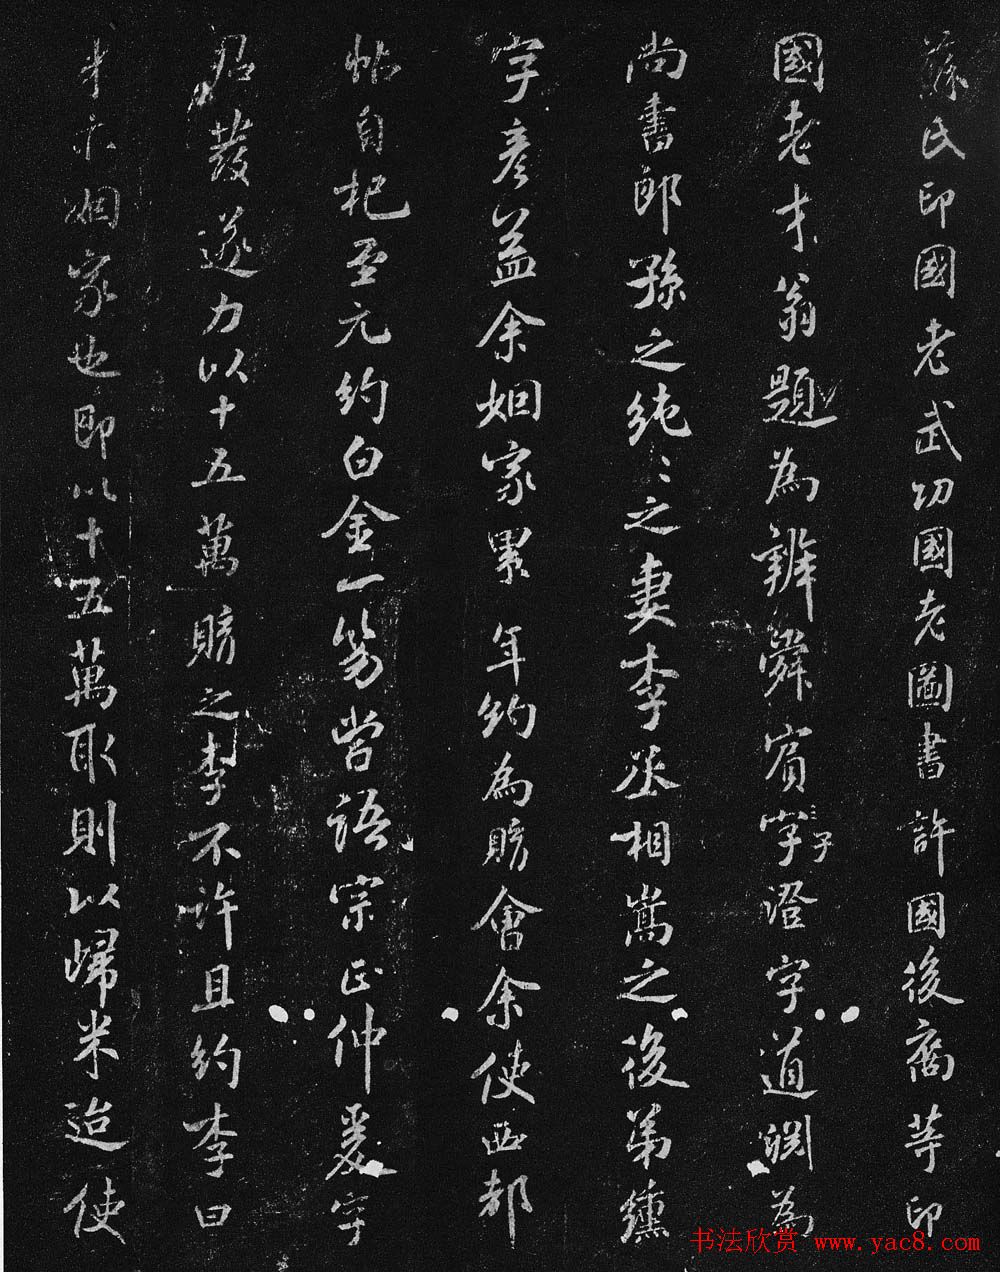 蘇氏印國老武功國老圖書許國後裔等印
國老才翁題為辨舜賓字子澄字道淵為
尚書郎孫之純〻之妻李丞相嵩之後弟纁
字彥益余姻家累年約為購會余使西都
帖自杞至元約白金一笏嘗語宗正仲爰字
君發遂力以十五萬購之李不許且約李曰
才亦姻家也即以十五萬取則以歸米迨使
书法欣赏 www.yac8.com